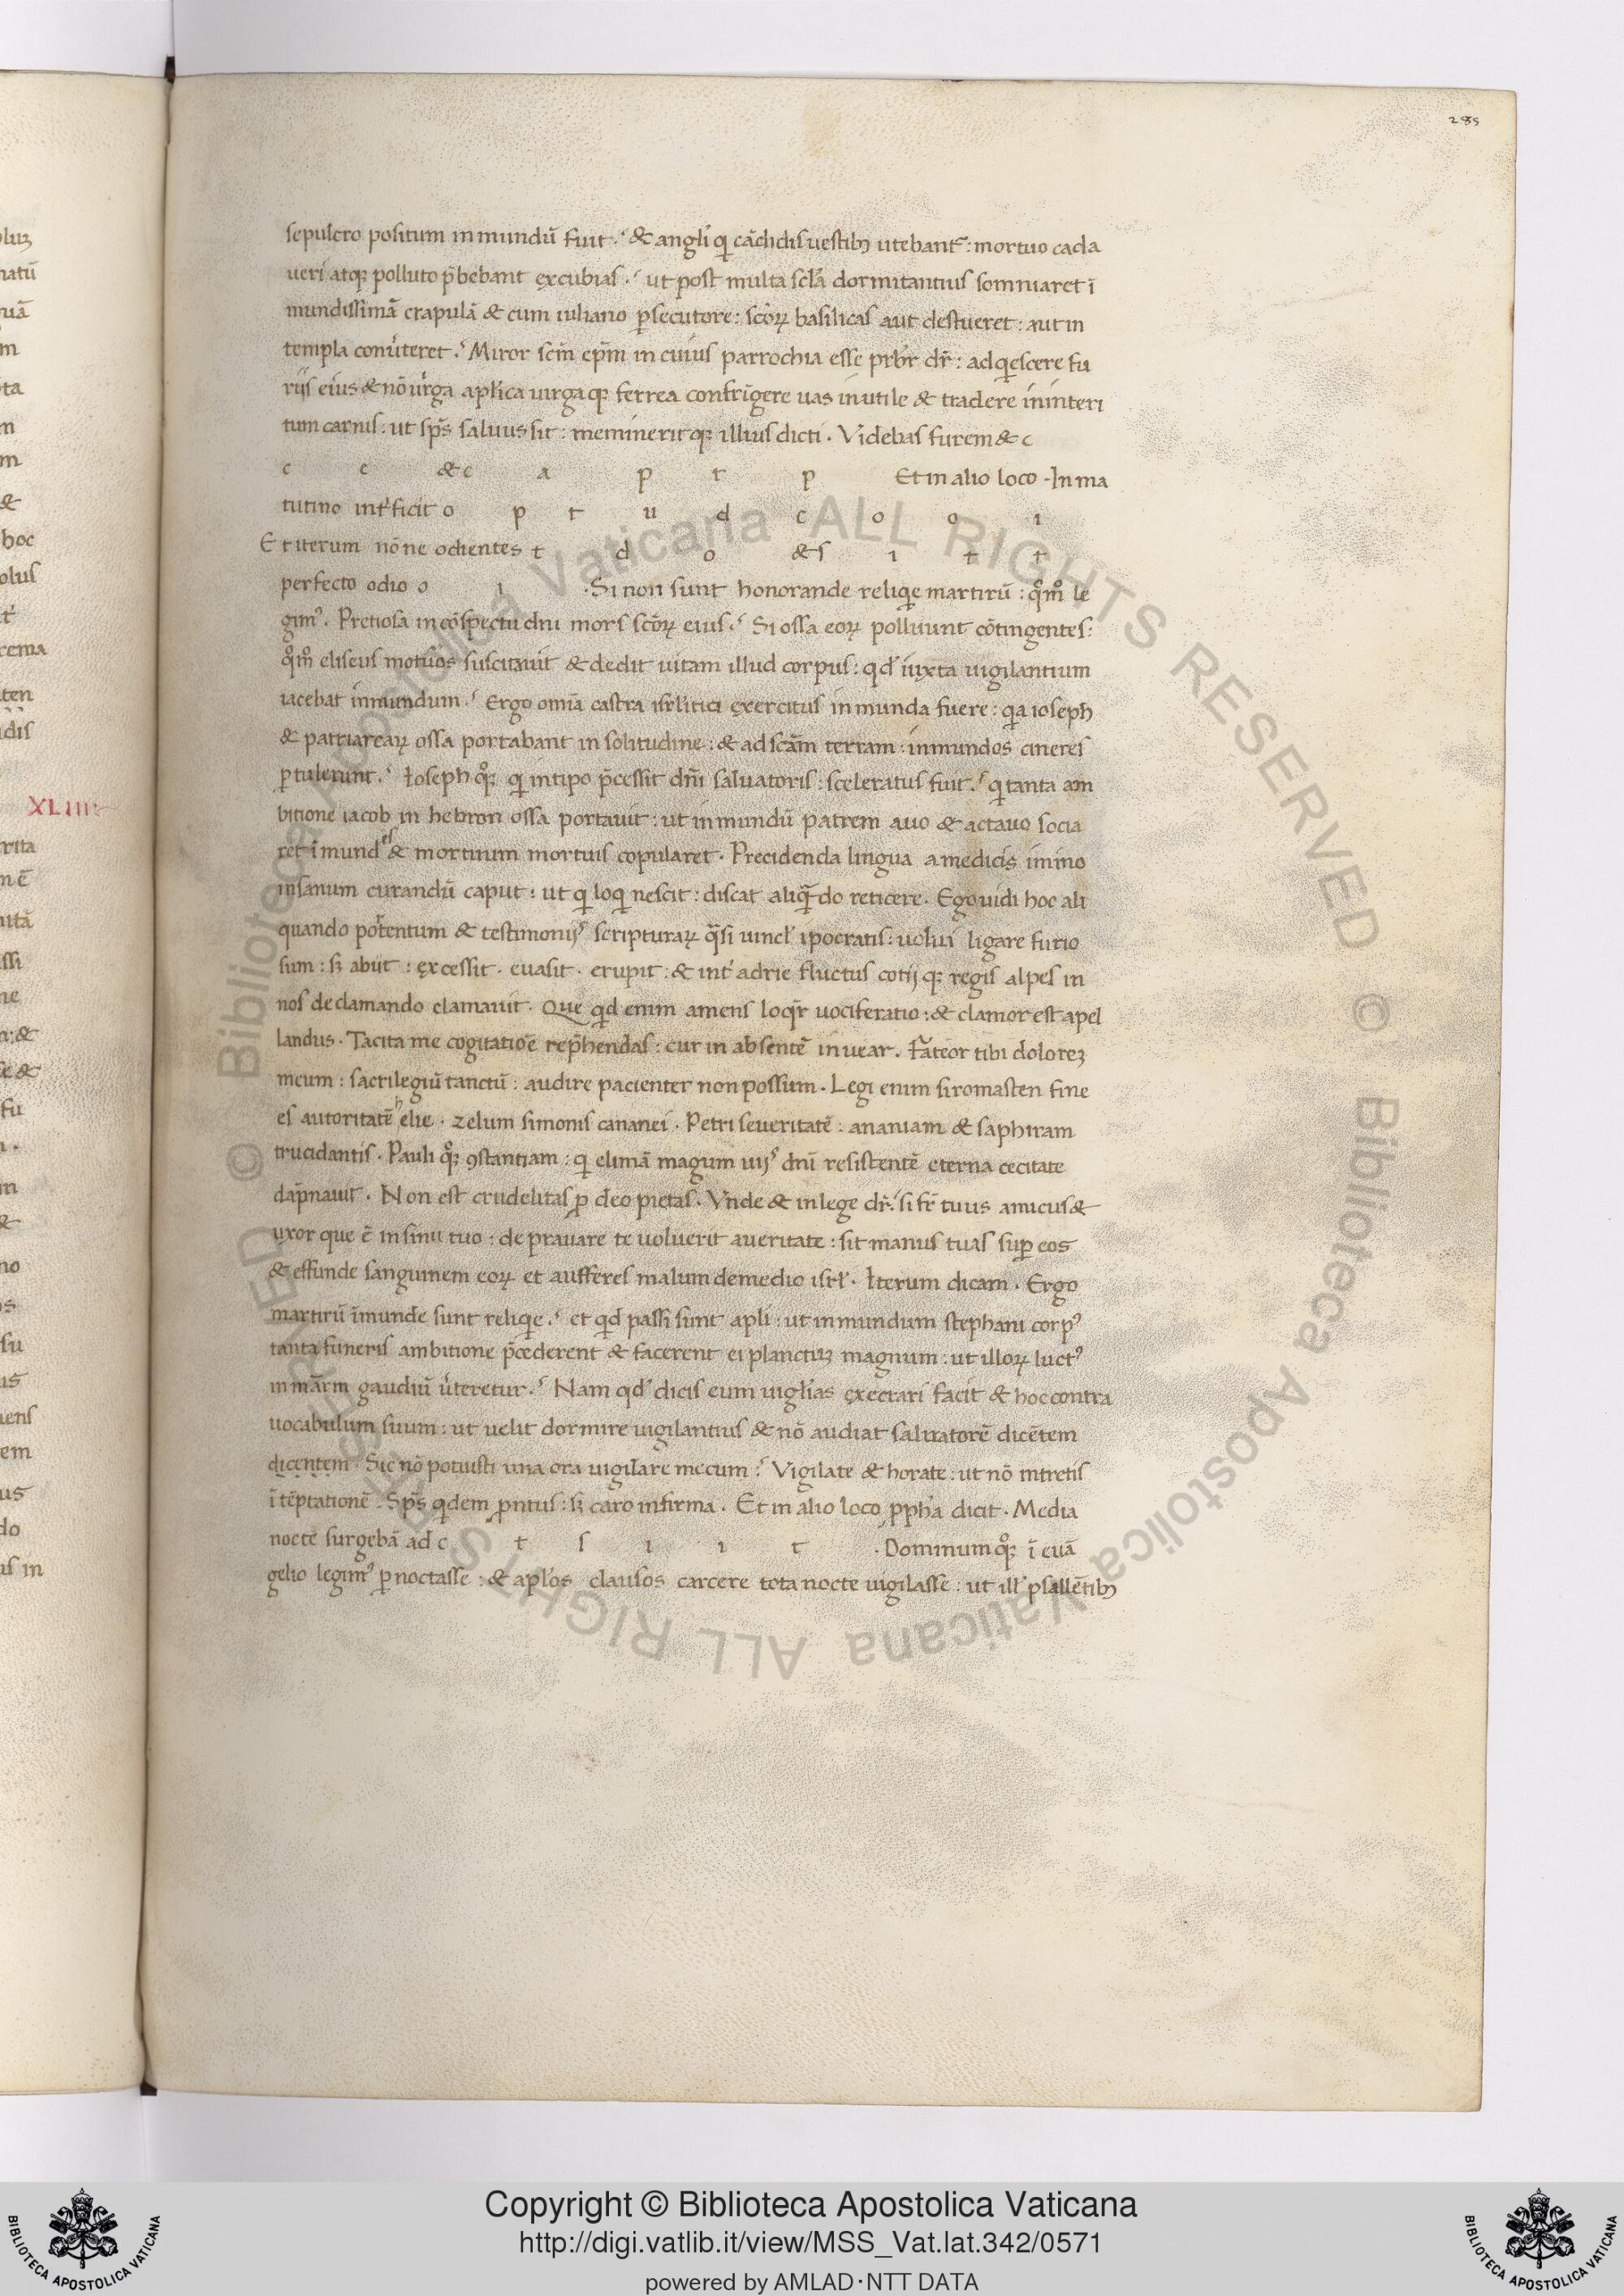 285
sepulcro positum inmundū fuit. & angli qi cādidis uestibꝫ utebant̃: mortuo cada
ueri atqꝫ polluto p̃bebant excubias. ut post multa scl̃a dormitantius somniaret ī
mundissimā crapulā & cum iuliano ꝑsecutore: scōꝝ basilicas aut destueret: aut in
templa conũteret. Miror scm̃ ep̃m in cuius parrochia esse prb̃r dr̃: adqiescere fu
riis eius & nō uirga apl̃ica uirgaqꝫ ferrea confrīgere uas inutile & tradere ininteri
tum carnis: ut sp̃s saluus sit: meminerit qꝫ illius dicti. Videbas furem & c
c e & c a p t p Et in alio loco. In ma
tutino int̃ficit o p t u d c o o i
Et iterum nōne odientes t d o & s i t t
perfecto odio o i . Si non sunt honorande reliqie martirū: qm̊ le
gim᾽. Pretiosa in cōspectu dn̄i mors scōꝝ eius. Si ossa eoꝝ polluunt cōtingentes:
qm̊ eliseus motuos suscitauit & dedit uitam illud corpus: qd̓ iuxta uigilantium
iacebat inmundum. Ergo omīa castra isrl̃itici exercitus inmunda fuere: qia ioseph
& patriarcaꝝ ossa portabant in solitudine: & ad scām terram: inmundos cineres
ꝑtulerunt. Ioseph qꝫ qi in tipo p̃cessit dn̄i saluatoris: sceleratus fuit. qi tanta am
bitione iacob in hebron ossa portauit: ut inmundū patrem auo & actauo socia
ret īmundes & mortuum mortuis copularet. Precidenda lingua a medicis imino
insanum curandū caput: ut qi loqi nescit: discat aliqãdo reticere. Ego uidi hoc ali
quando portentum & testimoniis scripturaꝝ qãsi uincl̓ ipocratis: uolui ligare furio
sum: sꝫ abiit: excessit. euasit. erupit: & int̓ adrie fluctus cotij qꝫ regis alpes in
nos declamando clamauit. Que qid enim amens loqr̃ uociferatio: & clamor est apel
landus. Tacita me cogitatiōe rep̃hendas: cur in absentē inuear. Fateor tibi doloreꝫ
meum: sacrilegiū tanctū: audire pacienter non possum. Legi enim siromasten fine
es autoritatē helie. zelum simonis cananei. Petri seueritatē: ananiam & saphiram
trucidantis. Pauli qꝫ ꝯstantiam: qi elimā magum uijs dn̄i resistentē eterna cecitate
dap̄nauit. Non est crudelitas ꝓ deo pietas. Vnde & in lege dr̃. si fr̃ tuus amicus &
uxor que ē in sinu tuo: deprauare te uoluerit a ueritate: sit manus tuas suꝑ eos
& effunde sanguinem eoꝝ et aufferes malum de medio isrl̓. Iterum dicam. Ergo
martirū īmunde sunt reliqie. et qid passi sunt apl̃i: ut inmundum stephani corp᾽
tanta funeris ambitione p̃cederent & facerent ei planctuꝫ magnum: ut illoꝝ luct᾽
in nr̄m gaudiū ũteretur. Nam qd̓ dicis eum uigl̃ias execrari facit & hoc contra
uocabulum suum: ut uelit dormire uigilantius & nō audiat saluatorē dicētem
dicentem. Sic nō potuisti una ora uigilare mecum. Vigilate & horate: ut nō intretis
ī tēptationē. Sp̃s qidem ꝓntus: sꝫ caro infirma. Et in alio loco ꝓpha dicit. Media
nocte surgebā ad c t s i i t . Dominum qꝫ ī euā
gelio legim᾽ ꝑnoctasse: & apl̃os clausos carcere tota nocte uigilasse: ut ill̓ psallētibꝫ
XLIIII
Copyright © Biblioteca Apostolica Vaticana
http://digi.vatlib.it/view/MSS_Vat.lat.342/0571
powered by AMLAD·NTT DATA
BIBLIOTECA APOSTOLICA VATICANA
BIBLIOTECA APOSTOLICA VATICANA
© Biblioteca Apostolica Vaticana ALL RIGHTS RESERVED
© Biblioteca Apostolica Vaticana ALL RIGHTS RESERVED